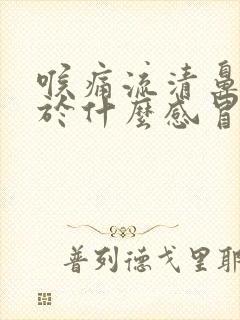 喉痛流清鼻
於什麼感冒
普列德戈里耶